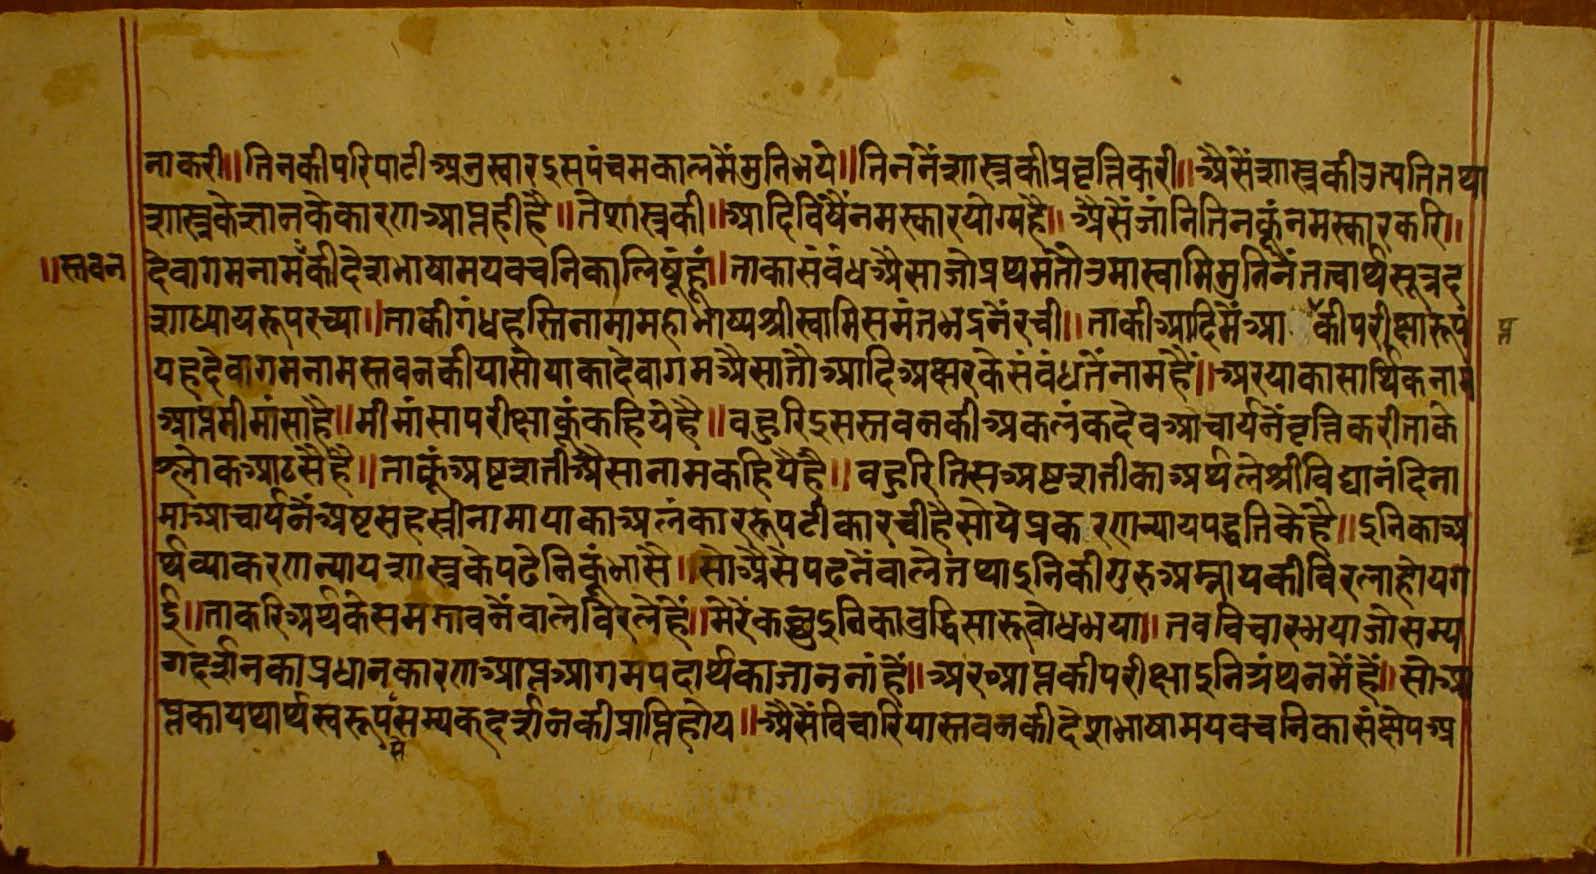 ना करी ॥ तिनकी परिपाटी अनुस्वार इस पंचम काल मैं मुनि भये ॥ तिननें शास्त्र की प्रवृत्ति करी ॥ अैसें शास्त्र की उत्पति तथा
शास्त्र के ज्ञान के कारण आप्त ही है ॥ तै शास्त्र की ॥ आदि विषैं नमस्कार योग्य है ॥ अैसैं जांनि तिनकूं नमस्कार करि ॥
॥ स्तवन
देवागम नाम की देशभाषामय वचनिका लिषूं हूं ॥ ताका संबंध अैसा जो प्रथम तौ उमास्वामि मुनिनैं तत्वार्थसूत्र द
शाध्याय रूप रच्या ॥ ताकी गंधहस्ति नामा महाभाष्य श्री स्वामि समंतभद्रनैं रची ॥ ताकी आदि मैं आ की परीक्षा रूप
प्त
यह देवागम नाम स्तवन कीया सो याका देवागम अैसा तौ आदि अक्षर के संबंध तैं नाम है ॥ अर याका सार्थिक नाम
आप्तमीमांसा है ॥ मीमांसा परीक्षा कूं कहिये है ॥ बहुरि इस स्तवन की अकलंकदेव आचार्यनें वृत्ति करी ताके
श्लोक आठसै हैं ॥ ताकूं अष्टशती अैसा नाम कहियै है ॥ बहुरि तिस अष्टशती का अर्थ ले श्री विद्यानंदि ना
मा आचार्यनैं अष्टसहस्त्री नामा याका अलंकार रूप टीका रची है सो ये प्रकरण न्याय पद्धति के है ॥ इनिका अ
र्थ व्याकरण न्याय शास्त्र के पढेनिकूं भासै ॥ सो अैसे पढनें वाले तथा इनिकी गुरु अम्नाय की विरला होय ग
ई ॥ ताकरि अर्थ के समझावनें वाले विरले हैं ॥ मेरैं कछु इनिका बुद्धि सारू बोध भया ॥ तब विचार भया जो सम्य
गदर्शन का प्रधान कारण आप्त आगम पदार्थ का जाननां हैं ॥ अर आप्त की परीक्षा इनि ग्रंथन मैं हैं ॥ सो आ
प्त का यथार्थ स्वरूप सम्यकदर्शन की प्राप्ति होय ॥ अैसैं विचारि या स्तवन की देशभाषामय वचनिका संक्षेप अ